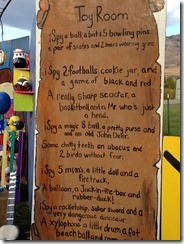 Toy Room
iSpy a ball, a bat & 5 bowling pins,
a pair of and 2 bears wearing grins
iSpy 2 footballs, cookie jar, and
a game of black and red
A really sharp scooter, a
basketball and a Mr. who's just
a head.
iSpy a magic 8 ball, a pretty purse and
and an old John Deer.
Some chatty teeth an abacus and
2 birds without fear.
iSpy 5 mimis, a little doll and a
firetruck,
A balloon, a Jack-in-the-box and
rubber-duck!
iSpy a rocketship, saber sword and a
very dangerous dinosaur.
A xylophone a little drum, a fat
beach ball and